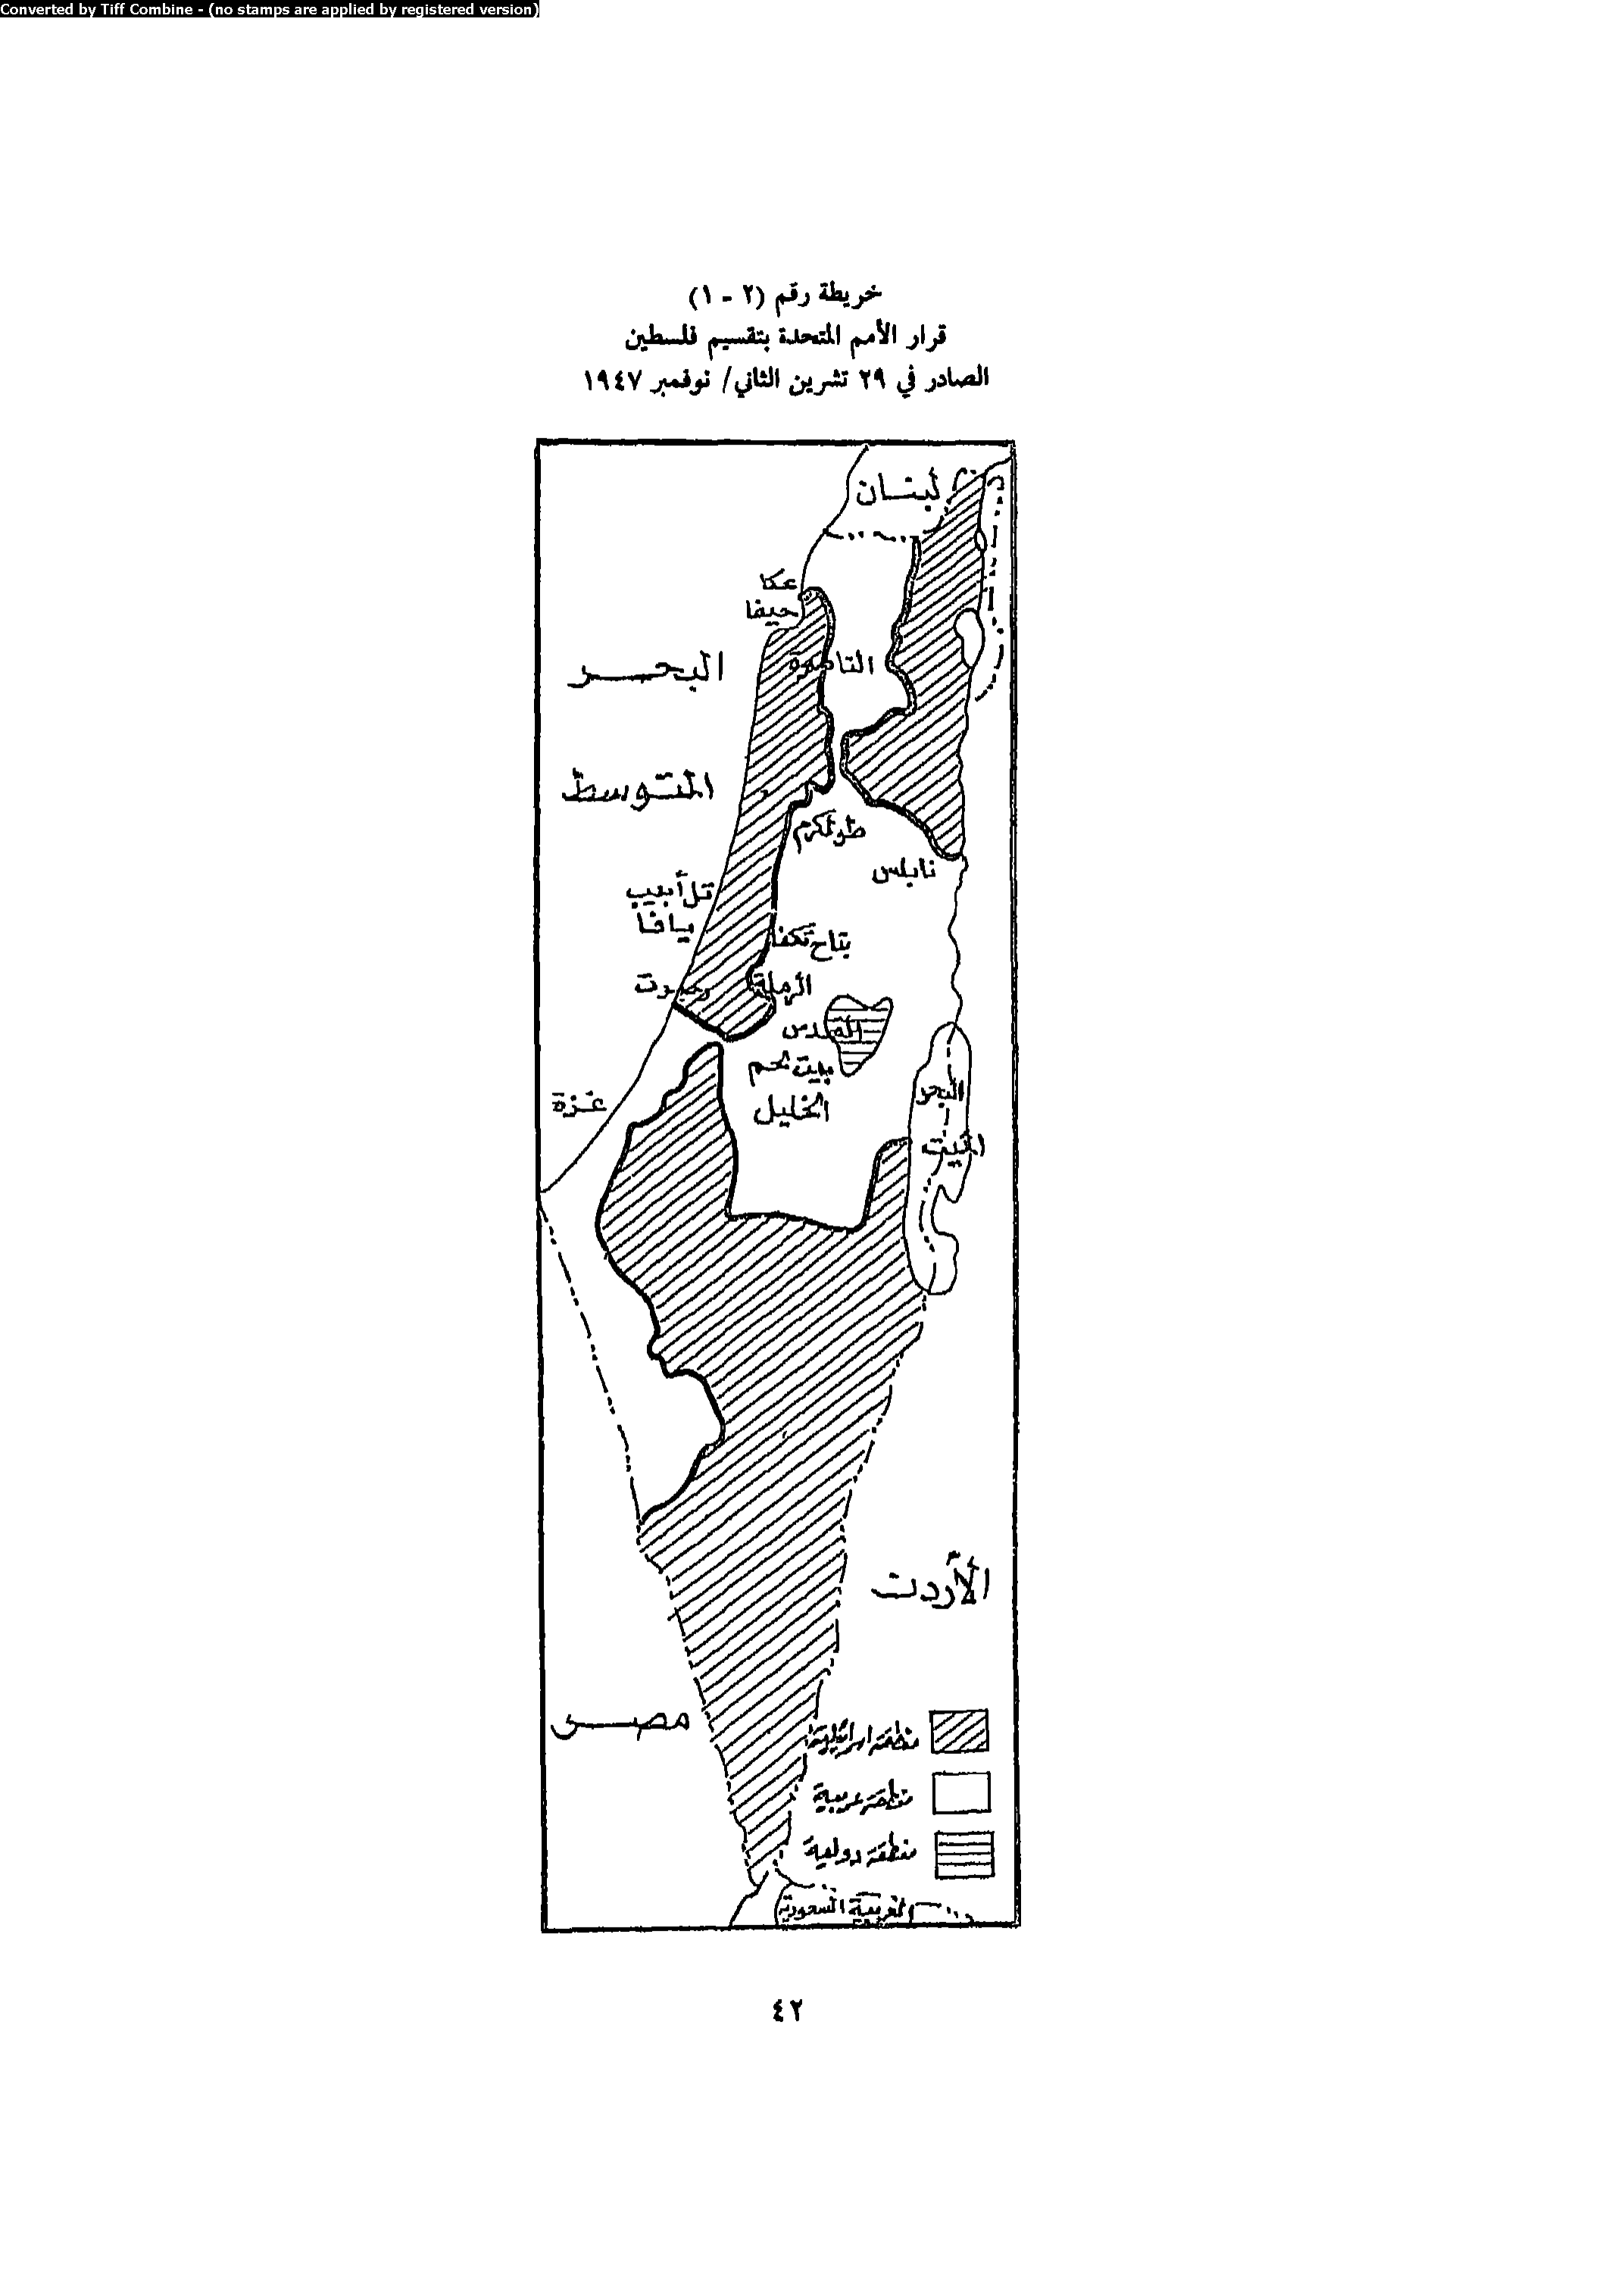 Converted by Tiff Combine - (no stamps are applied by registered version)
خريطة رقم (٢ - ١)
قرار الأمم المتحدة بتقسيم فلسطين
الصادر في ٢٩ تشرين الثاني/ نوفمبر ١٩٤٧
لبنان
عكا
حيفا
الناصرة
البحر
المتوسط
طولكرم
نابلس
تل أبيب
يافا
بتاح تكفا
الرملة
القدس
بيت لحم
الخليل
غزة
البحر
الميت
الأردن
مصر
منطقة اسرائيلية
منطقة عربية
منطقة دولية
العربية السعودية
٤٢